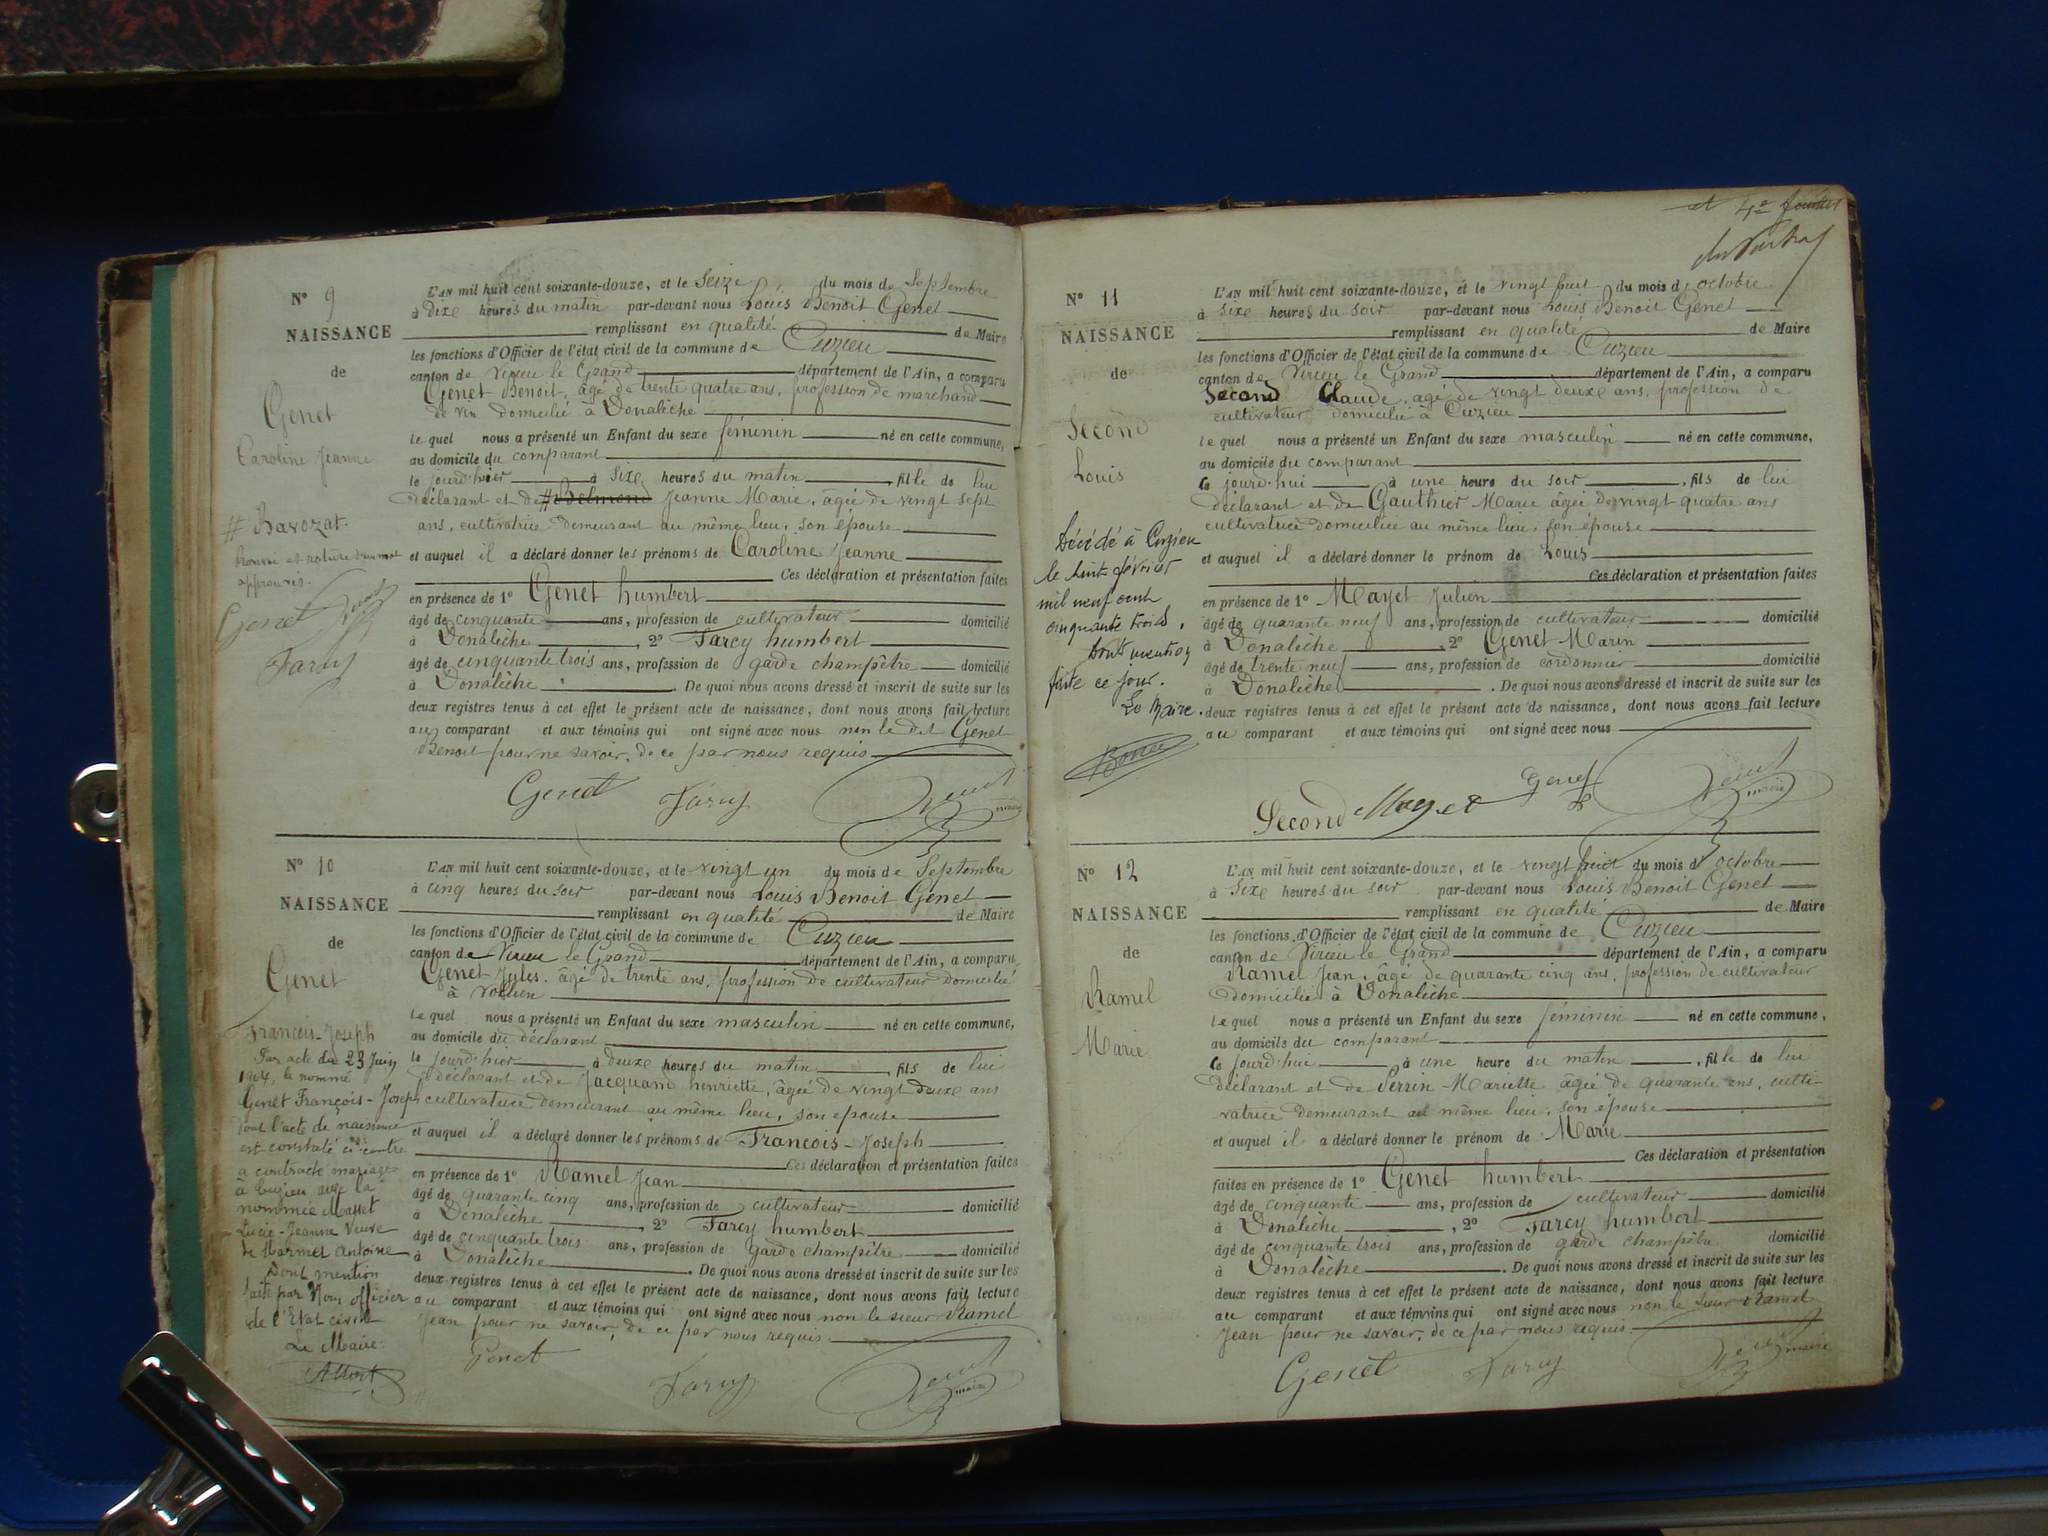 N° 9
NAISSANCE
de
Genet
Caroline Jeanne
L'AN mil huit cent soixante-douze, et le Seize du mois de Septembre
à dixe heures du matin par-devant nous Louis Benoit Genet
remplissant en qualité de Maire
les fonctions d'Officier de l'état civil de la commune de Cuzieu
canton de Virieu le Grand département de l'Ain, a comparu
Genet Benoit, âgé de trente quatre ans, profession de marchand
de vin domicilié à Donalèche
le quel nous a présenté un Enfant du sexe féminin né en cette commune,
au domicile du comparant
le jourd'hier à sixe heures du matin, fille de lui
déclarant et de # Belmond Jeanne Marie, âgée de vingt sept
ans, cultivatrice demeurant au même lieu, son épouse
et auquel il a déclaré donner les prénoms de Caroline Jeanne
Ces déclaration et présentation faites
en présence de 1° Genet humbert
âgé de cinquante ans, profession de cultivateur domicilié
à Donalèche, 2° Tarcy humbert
âgé de cinquante trois ans, profession de garde champêtre domicilié
à Donalèche. De quoi nous avons dressé et inscrit de suite sur les
deux registres tenus à cet effet le présent acte de naissance, dont nous avons fait lecture
au comparant et aux témoins qui ont signé avec nous non le dit Genet
Benoit pour ne savoir, de ce par nous requis
# Ravozat.
approuvés.
Genet
Tarcy
Genet Tarcy Genet maire
N° 10
NAISSANCE
de
Genet
Francois-Joseph
L'AN mil huit cent soixante-douze, et le vingt un du mois de Septembre
à cinq heures du soir par-devant nous Louis Benoit Genet
remplissant en qualité de Maire
les fonctions d'Officier de l'état civil de la commune de Cuzieu
canton de Virieu le Grand département de l'Ain, a comparu
Genet Jules, âgé de trente ans, profession de cultivateur domicilié
à
le quel nous a présenté un Enfant du sexe masculin né en cette commune,
au domicile du déclarant
le jourd'hier à deuxe heures du matin, fils de lui
déclarant et de Jacquand henriette, âgée de vingt deuxe ans
cultivatrice demeurant au même lieu, son épouse
et auquel il a déclaré donner les prénoms de Francois-Joseph
Ces déclaration et présentation faites
en présence de 1° Ramel Jean
âgé de quarante cinq ans, profession de cultivateur domicilié
à Donalèche, 2° Tarcy humbert
âgé de cinquante trois ans, profession de garde champêtre domicilié
à Donalèche. De quoi nous avons dressé et inscrit de suite sur les
deux registres tenus à cet effet le présent acte de naissance, dont nous avons fait lecture
au comparant et aux témoins qui ont signé avec nous non le sieur Ramel
Jean pour ne savoir, de ce par nous requis.
Par acte du 23 Juin
1904, le nommé
Genet François-Joseph
dont l'acte de naissance
est constaté ci-contre
a contracté mariage
à Cuzieu avec la
nommée Masset
Lucie-Jeanne Veuve
de Marmet Antoine
Dont mention
faite par Nous officier
de l'Etat civil
Le Maire
Genet Tarcy Genet maire
N° 11
NAISSANCE
de
Second
Louis
L'AN mil huit cent soixante-douze, et le vingt huit du mois d'octobre
à sixe heures du soir par-devant nous Louis Benoit Genet
remplissant en qualité de Maire
les fonctions d'Officier de l'état civil de la commune de Cuzieu
canton de Virieu le Grand département de l'Ain, a comparu
Second Claude, agé de vingt deuxe ans, profession de
cultivateur domicilié à Cuzieu
le quel nous a présenté un Enfant du sexe masculin né en cette commune,
au domicile du comparant
Ce jourd'hui à une heure du soir, fils de lui
déclarant et de Gauthier Marie âgée de vingt quatre ans
cultivatrice domiciliée au même lieu, son épouse
et auquel il a déclaré donner le prénom de Louis
Ces déclaration et présentation faites
en présence de 1° Mayet Julien
âgé de quarante neuf ans, profession de cultivateur domicilié
à Donalèche, 2° Genet Marin
âgé de trente neuf ans, profession de cordonnier domicilié
à Donalèche. De quoi nous avons dressé et inscrit de suite sur les
deux registres tenus à cet effet le présent acte de naissance, dont nous avons fait lecture
au comparant et aux témoins qui ont signé avec nous
Décédé à Cuzieu
le huit février
mil neuf cent
cinquante trois.
Dont mention
faite ce jour.
Le Maire.
Second Mayet Genet Genet maire
N° 12
NAISSANCE
de
Ramel
Marie
L'AN mil huit cent soixante-douze, et le vingt huit du mois d'octobre
à sixe heures du soir par-devant nous Louis Benoit Genet
remplissant en qualité de Maire
les fonctions d'Officier de l'état civil de la commune de Cuzieu
canton de Virieu le Grand département de l'Ain, a comparu
Ramel Jean, âgé de quarante cinq ans, profession de cultivateur
domicilié à Donalèche
le quel nous a présenté un Enfant du sexe féminin né en cette commune,
au domicile du comparant
Ce jourd'hui à une heure du matin, fille de lui
déclarant et de Perrin Mariette âgée de quarante ans, culti-
vatrice demeurant au même lieu, son épouse
et auquel il a déclaré donner le prénom de Marie
Ces déclaration et présentation
faites en présence de 1° Genet humbert
âgé de cinquante ans, profession de cultivateur domicilié
à Donalèche, 2° Tarcy humbert
âgé de cinquante trois ans, profession de garde champêtre domicilié
à Donalèche. De quoi nous avons dressé et inscrit de suite sur les
deux registres tenus à cet effet le présent acte de naissance, dont nous avons fait lecture
au comparant et aux témoins qui ont signé avec nous non le sieur Ramel
Jean pour ne savoir, de ce par nous requis.
Genet Tarcy Genet maire